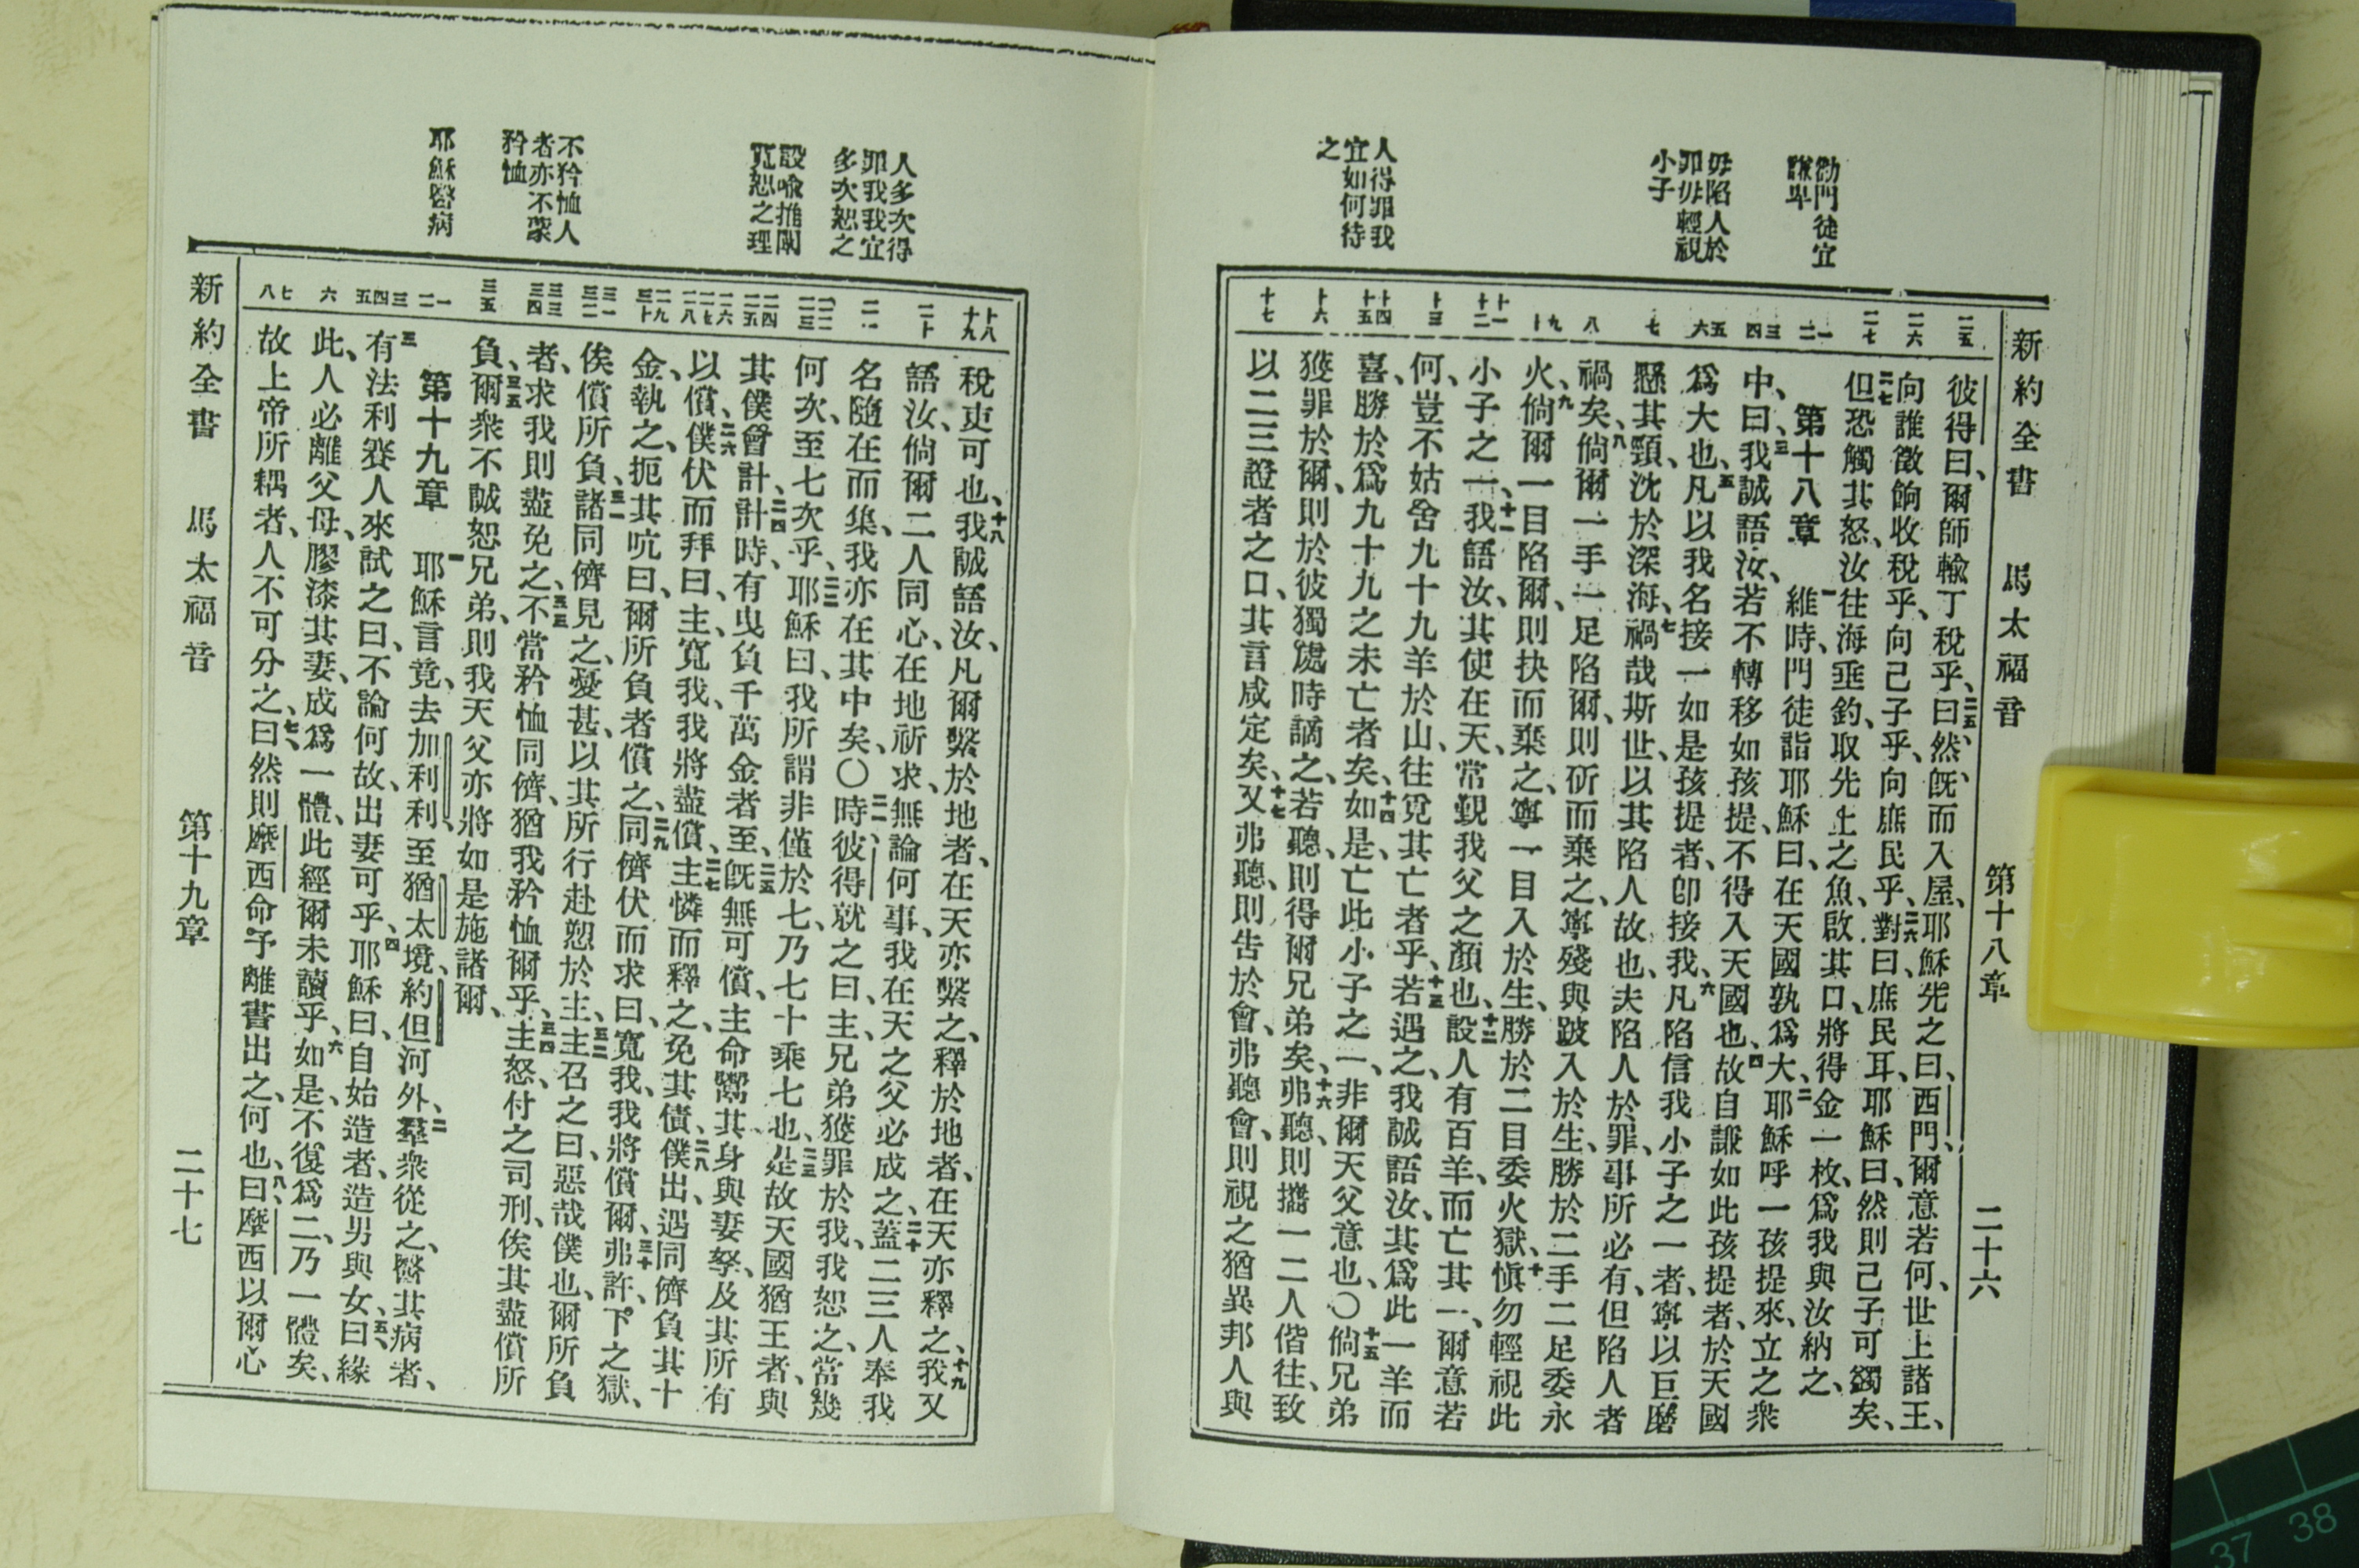 新約全書 馬太福音 第十八章 二十六
勸門徒宜
謙卑
毋陷人於
罪毋輕視
小子
人得罪我
宜如何待
之
二五
二六
二七
一
二
三
四
五
六
七
八
九
十
十一
十二
十三
十四
十五
十六
十七
彼得曰、爾師輸丁稅乎、二五曰然、旣而入屋、耶穌先之曰、西門、爾意若何、世上諸王、
向誰徵餉收稅乎、向己子乎、向庶民乎、二六對曰、庶民耳、耶穌曰、然則己子可蠲矣、
二七但恐觸其怒、汝往海垂釣、取先上之魚、啟其口、將得金一枚、爲我與汝納之、
第十八章 一維時、門徒詣耶穌曰、在天國孰爲大、二耶穌呼一孩提來、立之衆
中、曰、三我誠語汝、若不轉移如孩提、不得入天國也、四故自謙如此孩提者、於天國
爲大也、五凡以我名接一如是孩提者、卽接我、六凡陷信我小子之一者、寧以巨磨
懸其頸、沈於深海、七禍哉斯世、以其陷人故也、夫陷人於罪、事所必有、但陷人者
禍矣、八倘爾一手一足陷爾、則斫而棄之、寧殘與跛入於生、勝於二手二足委永
火、九倘爾一目陷爾、則抉而棄之、寧一目入於生、勝於二目委火獄、十愼勿輕視此
小子之一、十一我語汝、其使在天、常覲我父之顏也、十二設人有百羊、而亡其一、爾意若
何、豈不姑舍九十九羊於山、往覓其亡者乎、十三若遇之、我誠語汝、其爲此一羊而
喜、勝於爲九十九之未亡者矣、十四如是、亡此小子之一、非爾天父意也、〇十五倘兄弟
獲罪於爾、則於彼獨處時謫之、若聽、則得爾兄弟矣、十六弗聽、則攜一二人偕往、致
以二三證者之口、其言咸定矣、十七又弗聽、則告於會、弗聽會、則視之猶異邦人與
人多次得
罪我我宜
多次恕之
設喩推闡
寬恕之理
不矜恤人
者亦不蒙
矜恤
耶穌醫病
十八
十九
二十
二一
二二
二三
二四
二五
二六
二七
二八
二九
三十
三一
三二
三三
三四
三五
一
二
三
四
五
六
七
八
稅吏可也、十八我誠語汝、凡爾繫於地者、在天亦繫之、釋於地者、在天亦釋之、十九我又
語汝、倘爾二人同心、在地祈求、無論何事、我在天之父必成之、二十蓋二三人奉我
名隨在而集、我亦在其中矣、〇二一時、彼得就之曰、主、兄弟獲罪於我、我恕之、當幾
何次、至七次乎、二二耶穌曰、我所謂非僅於七、乃七十乘七也、二三是故天國猶王者、與
其僕會計、二四計時、有曳負千萬金者至、二五旣無可償、主命鬻其身與妻孥、及其所有
以償、二六僕伏而拜曰、主、寬我、我將盡償、二七主憐而釋之、免其債、二八僕出、遇同儕負其十
金、執之、扼其吭曰、爾所負者償之、二九同儕伏而求曰、寬我、我將償爾、三十弗許、下之獄、
俟償所負、三一諸同儕見之、憂甚、以其所行赴愬於主、三二主召之曰、惡哉僕也、爾所負
者、求我則盡免之、三三不當矜恤同儕、猶我矜恤爾乎、三四主怒、付之司刑、俟其盡償所
負、三五爾衆不誠恕兄弟、則我天父亦將如是施諸爾、
第十九章 一耶穌言竟、去加利利、至猶太境、約但河外、二羣衆從之、醫其病者、
三有法利賽人來試之曰、不論何故、出妻可乎、四耶穌曰、自始造者、造男與女、五曰、緣
此、人必離父母、膠漆其妻、成爲一體、此經爾未讀乎、六如是、不復爲二、乃一體矣、
故上帝所耦者、人不可分之、七曰、然則摩西命予離書出之、何也、八曰、摩西以爾心
新約全書 馬太福音 第十九章 二十七
37 38